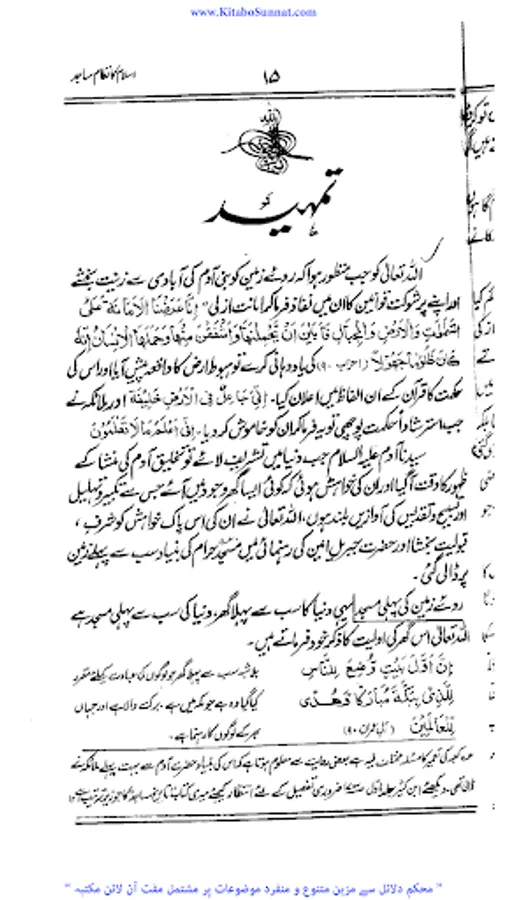 www.KitaboSunnat.com
اسلام کا نظام مساجد
۱۵
تمہید
اللہ تعالیٰ کو جب منظور ہوا کہ روئے زمین کو بنی آدم کی آبادی سے زینت بخشے
اور اپنے پر شوکت قوانین کا ان میں نفاذ فرما کر امانت ازلی "إِنَّا عَرَضْنَا الْأَمَانَةَ عَلَى
السَّمٰوٰتِ وَالْأَرْضِ وَالْجِبَالِ فَأَبَيْنَ أَنْ يَّحْمِلْنَهَا وَأَشْفَقْنَ مِنْهَا وَحَمَلَهَا الْإِنْسَانُ إِنَّهُ
كَانَ ظَلُومًا جَهُولًا (احزاب-۹) کی یاد دہانی کرے تو ہبوط ارض کا واقعہ پیش آیا اور اس کی
حکمت کا قرآن کے ان الفاظ میں اعلان کیا۔ إِنِّي جَاعِلٌ فِي الْأَرْضِ خَلِيفَةً اور ملائکہ نے
جب استرشاداً حکمت پوچھی تو یہ فرما کر ان کو خاموش کر دیا۔ إِنِّي أَعْلَمُ مَا لَا تَعْلَمُونَ
سیدنا آدم علیہ السلام جب دنیا میں تشریف لائے تو تخلیق آدم کی منشا کے
ظہور کا وقت آ گیا اور ان کی خواہش ہوئی کہ کوئی ایسا گھر وجود میں آئے جس سے تکبیر و تہلیل
اور تسبیح و تقدیس کی آوازیں بلند ہوں، اللہ تعالیٰ نے ان کی اس پاک خواہش کو شرف
قبولیت بخشا اور حضرت جبریل امین کی رہنمائی میں مسجد حرام کی بنیاد سب سے پہلے زمین
پر ڈالی گئی۔
روئے زمین کی پہلی مسجد الٰہی دنیا کا سب سے پہلا گھر، دنیا کی سب سے پہلی مسجد ہے
اللہ تعالیٰ اس گھر کی اولیت کا ذکر خود فرماتے ہیں۔
إِنَّ أَوَّلَ بَيْتٍ وُّضِعَ لِلنَّاسِ بلاشبہ سب سے پہلا گھر جو لوگوں کی عبادت کیلئے مقرر
لَلَّذِي بِبَكَّةَ مُبَارَكًا وَّهُدًى کیا گیا وہ ہے جو مکہ میں ہے، برکت والا ہے اور جہاں
لِّلْعَالَمِينَ (آل عمران-۹۰) بھر کے لوگوں کا رہنما ہے۔
کعبہ کی تعمیر کا مسئلہ مختلف فیہ ہے بعض روایت سے معلوم ہوتا ہے کہ اس کی بنیاد حضرت آدم سے بہت پہلے ملائکہ نے
ڈالی تھی، دیکھئے ابن کثیر جلد اول ضروری تفصیل کے لئے انتظار کیجئے میری کتاب
" محکم دلائل سے مزین متنوع و منفرد موضوعات پر مشتمل مفت آن لائن مکتبہ "